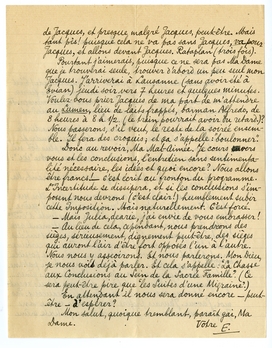 de Jacques, et presque malgré Jacques, peut-être. Mais
tant pis! puisque tu ne va pas sans Jacques,
Jacques, et allons devant Jacques. Rataplan! (trois fois).
Pourtant j'aimerais, puisque ce ne sera pas Ma Dame
que je trouverai seule, trouver d'abord un peu seul mon
Jacques. J'arriverai à Lausanne (sans avoir été à
Evian) Jeudi soir vers 7 heures et quelques minutes.
Voulez-vous prier Jacques de ma part de m'attendre
au
8 heures à 8 h 1/2; le train pourrait avoir du retard)?
Nous passerons, s'il veut, le reste de la soirée ensem-
ble. Il fera des croquis; et ça s'appelle: boulonner.
Donc au revoir, Ma Mal-Aimée. Je cours
vous et les conclusions, l'entretien sans sentimenta-
lité nécessaire, les idées et quoi encore? Nous allons
être francs — c'est écrit au fronton du programme.
L'Incertitude se dissipera, et si les conclusions s'im-
posent nous devrons (c'est clair!) humblement subir
cette Imposition. Mais naturellement. C'est force.
— Mais Julia, dearie, j'ai envie de vous embrasser!
— Au lieu de cela, cependant, nous prendrons des
sièges, sérieusement, dignement peut-être, des sièges
qui auront l'air d'être fort opposés l'un à l'autre.
Nous nous y assoierons. Et nous parlerons. Mon bleu,
je nous vois déjà parler. Et cela s'appelle: la Chasse
aux Conclusions au Sein de la Sacrée Famille! (Ce
sera peut-être pire que les Suites d'une Migraine!)
En attendant il nous sera donné encore — peut-
être — d'espérer!
Mon salut, quoique tremblant, paraît gai, Ma
Dame.
Vôtre E.